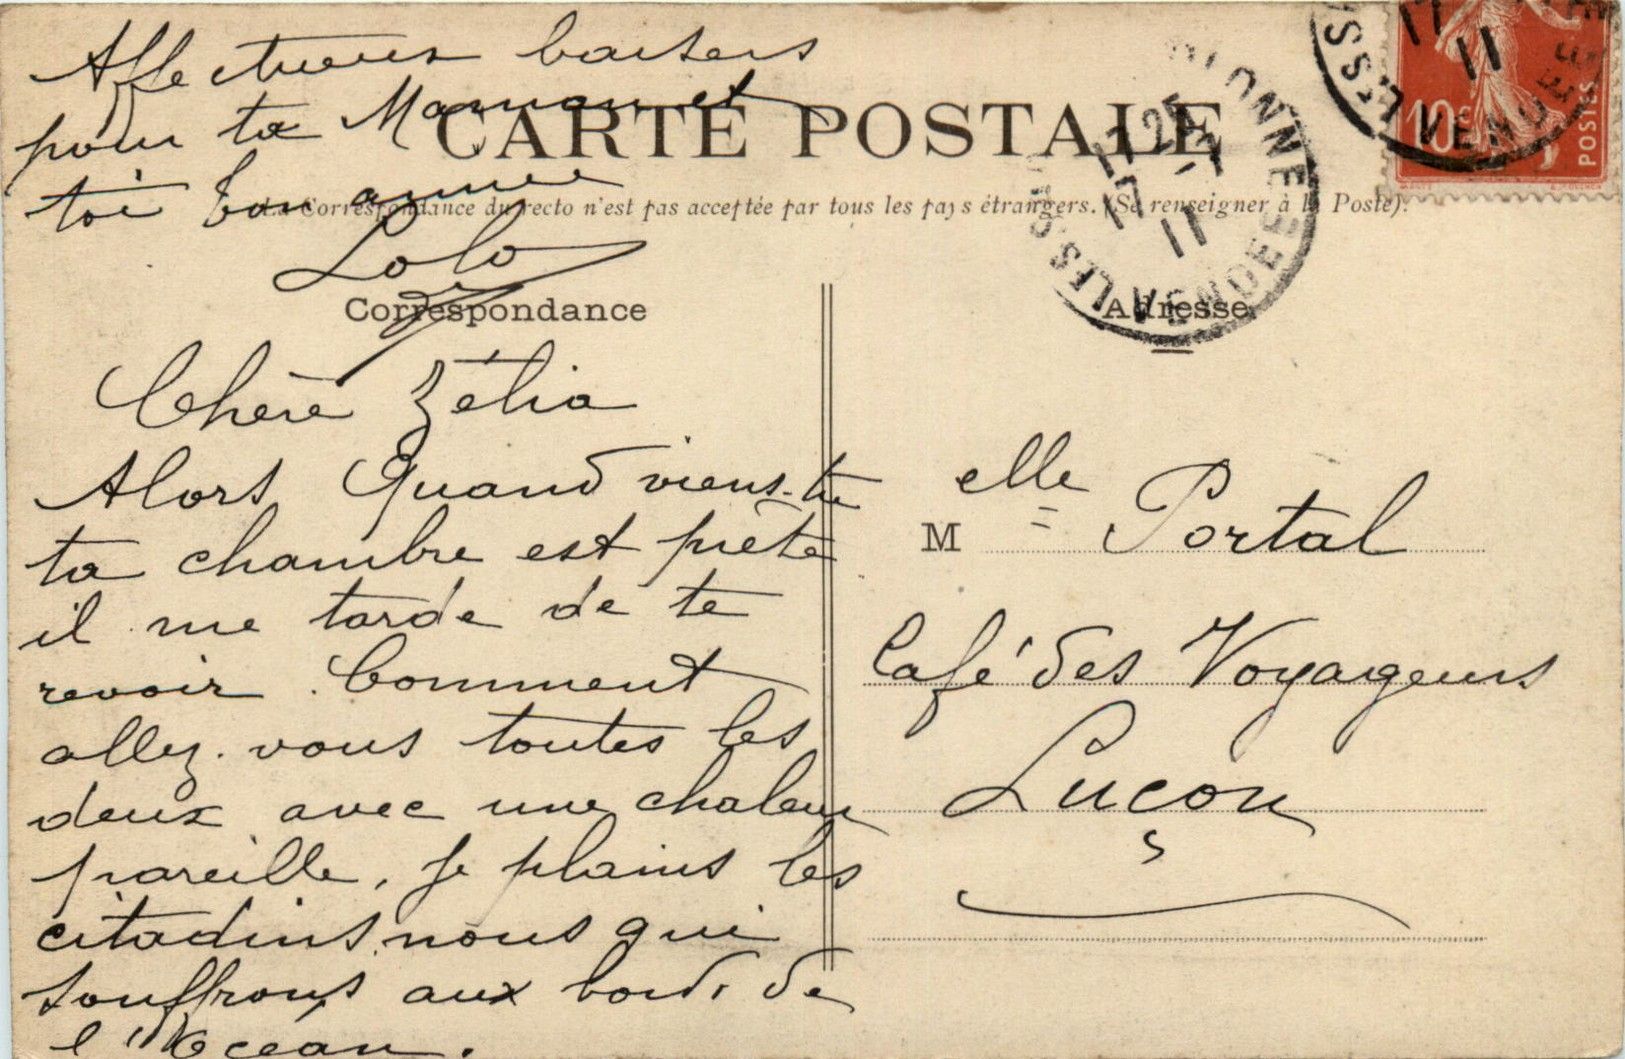 Affectueux baisers
pour ta Maman et
toi bon année
Lolo
CARTE POSTALE
La Correspondance du recto n'est pas acceptée par tous les pays étrangers. (Se renseigner à la Poste).
Correspondance
Chère Zélia
Alors Quand viens-tu
ta chambre est prête
il me tarde de te
revoir. Comment
allez-vous toutes les
deux avec une chaleur
pareille, je plains les
citadins, nous qui
souffrons aux bords de
l'Océan.
Adresse
M elle Portal
Café des Voyageurs
Luçon
10c
POSTES
OLONNE
VENDEE
17
11
VENDEE